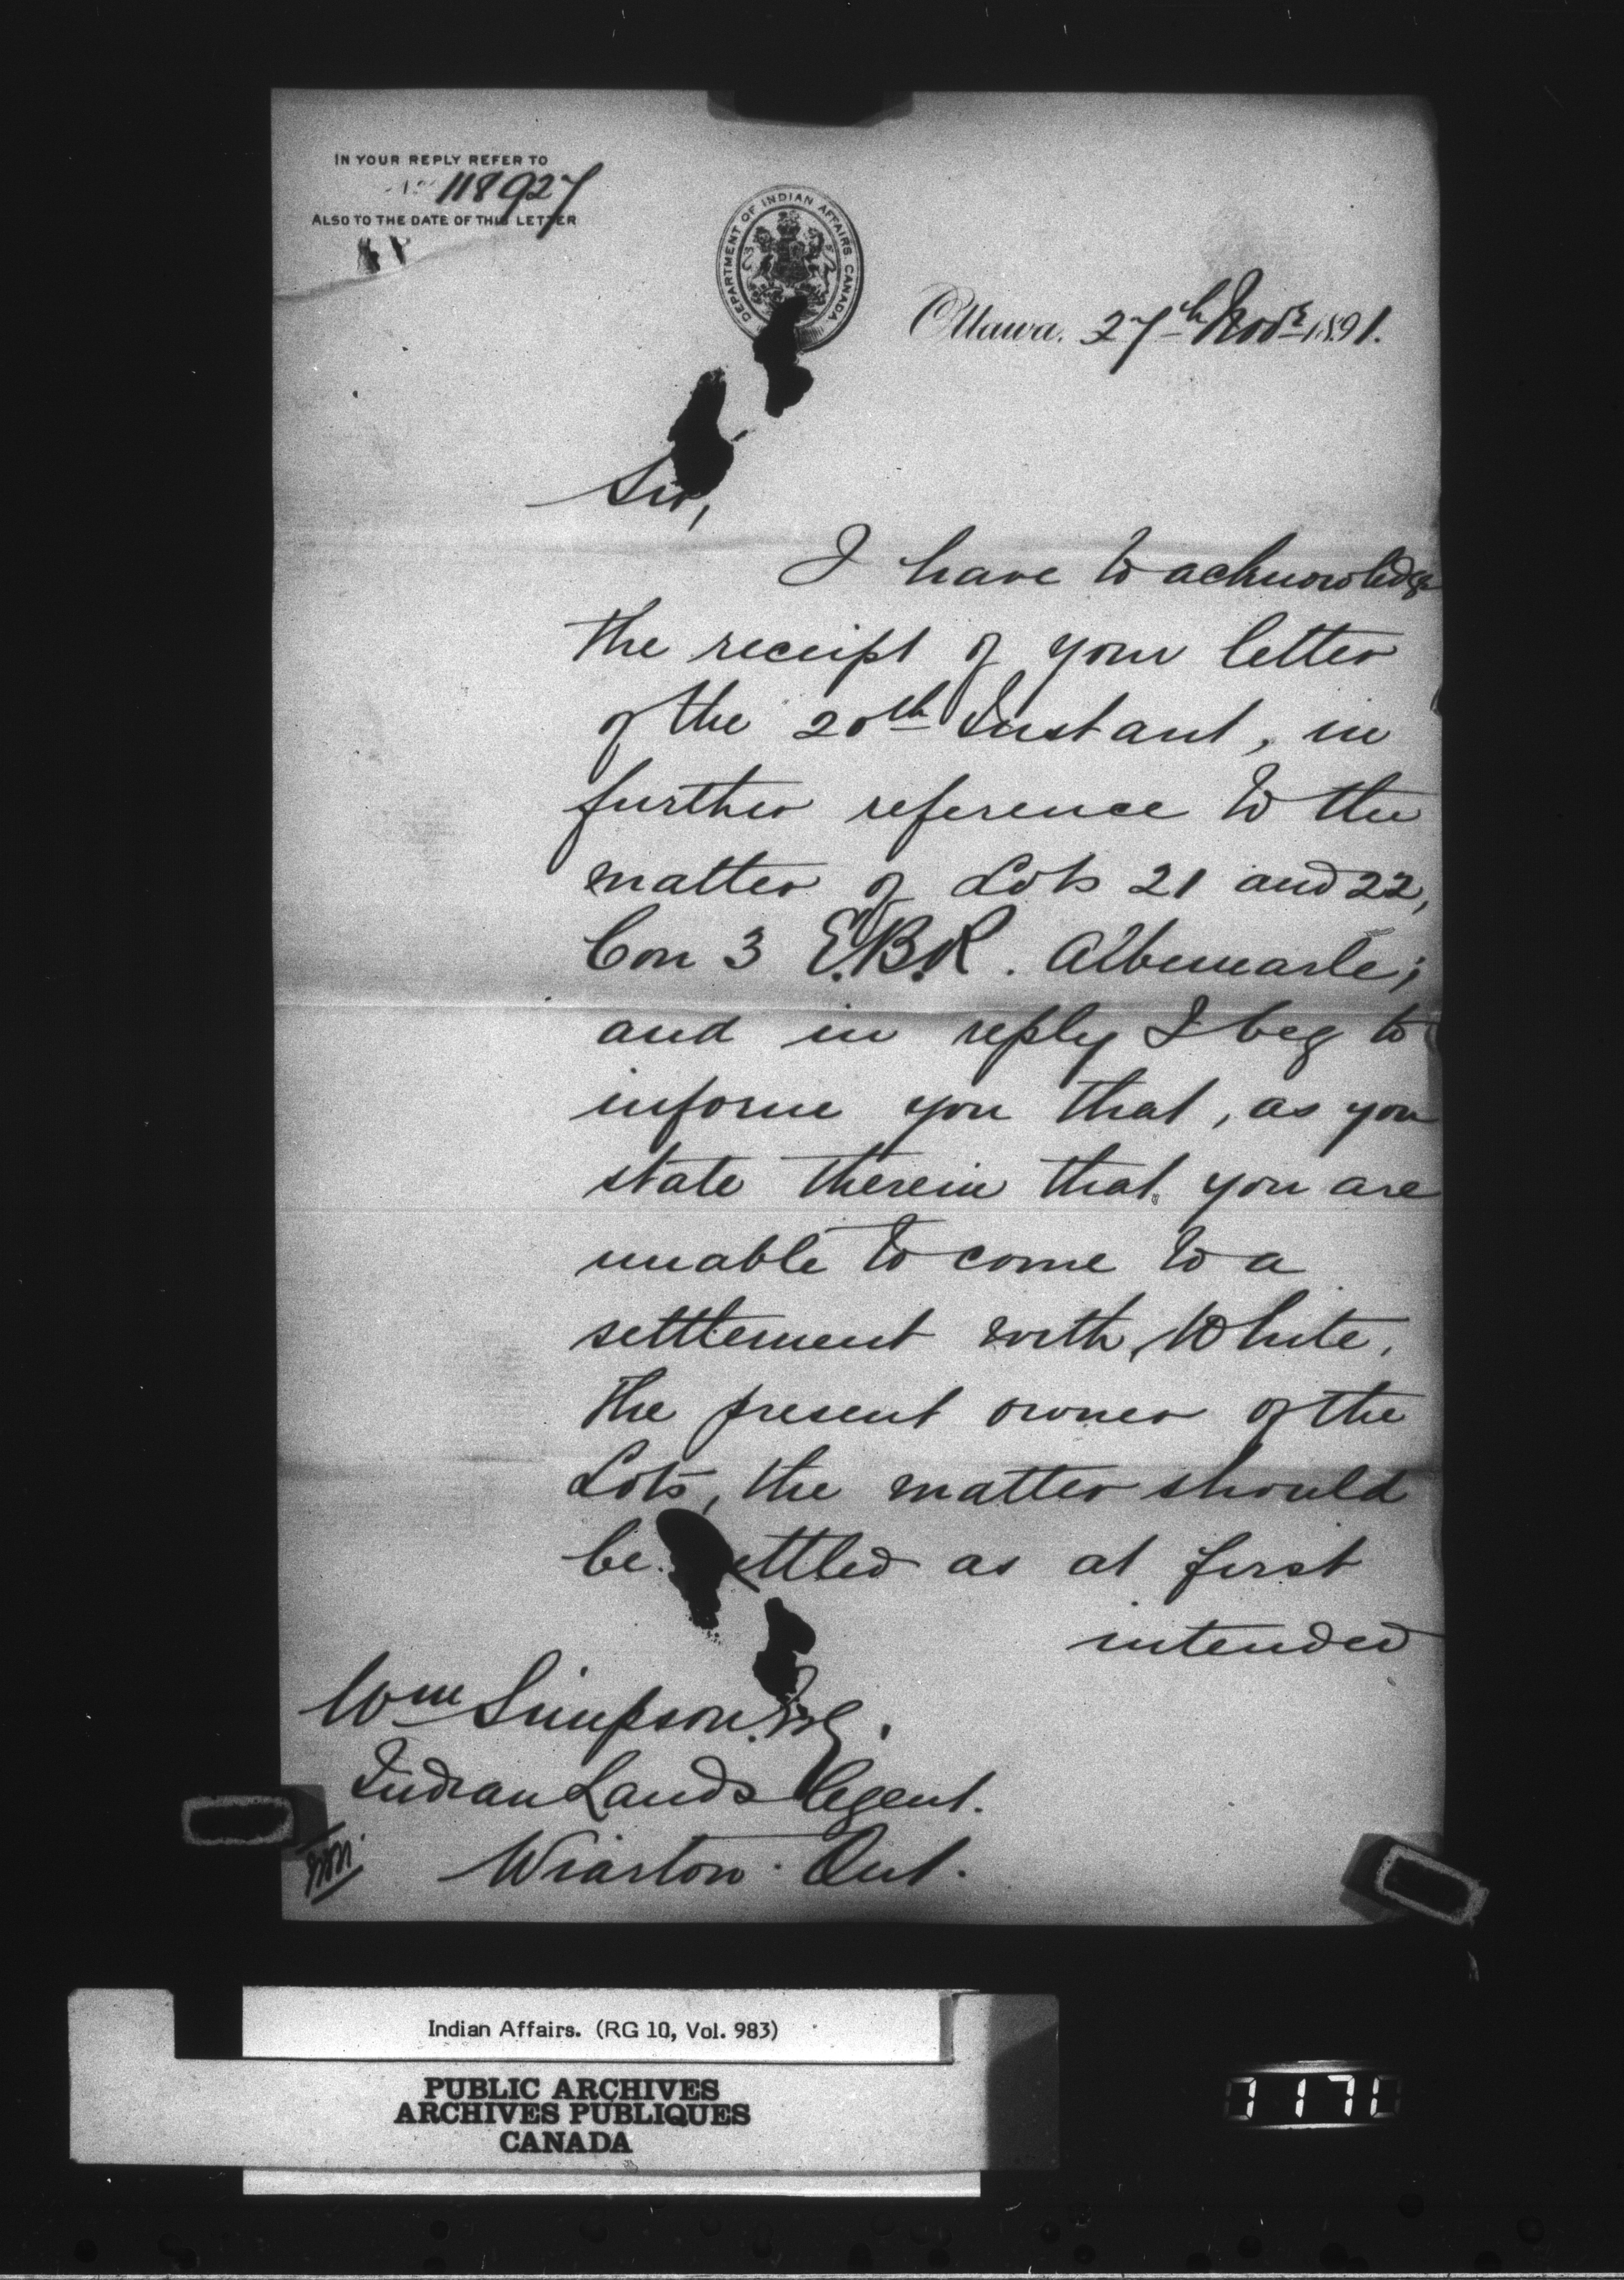 IN YOUR REPLY REFER TO
No 118927
ALSO TO THE DATE OF THIS LETTER
DEPARTMENT OF INDIAN AFFAIRS CANADA
Ottawa, 27th Novr 1891.
Sir,
I have to acknowledge
the receipt of your letter
of the 20th Instant, in
further reference to the
matter of Lots 21 and 22,
Con 3 E.B.R. Albemarle;
and in reply I beg to
inform you that, as you
state therein that you are
unable to come to a
settlement with White,
the present owner of the
Lots, the matter should
be settled as at first
intended
Wm Simpson. Esq.
Indian Lands Agent.
Wiarton. Ont.
Indian Affairs. (RG 10, Vol. 983)
PUBLIC ARCHIVES
ARCHIVES PUBLIQUES
CANADA
1171